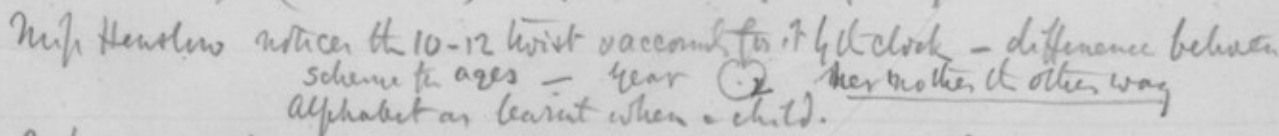 Miss Henslow notices th 10-12 twist & accounts for it by th clock – difference between
scheme for ages – year her mother th other way
Alphabet as learnt when a child.